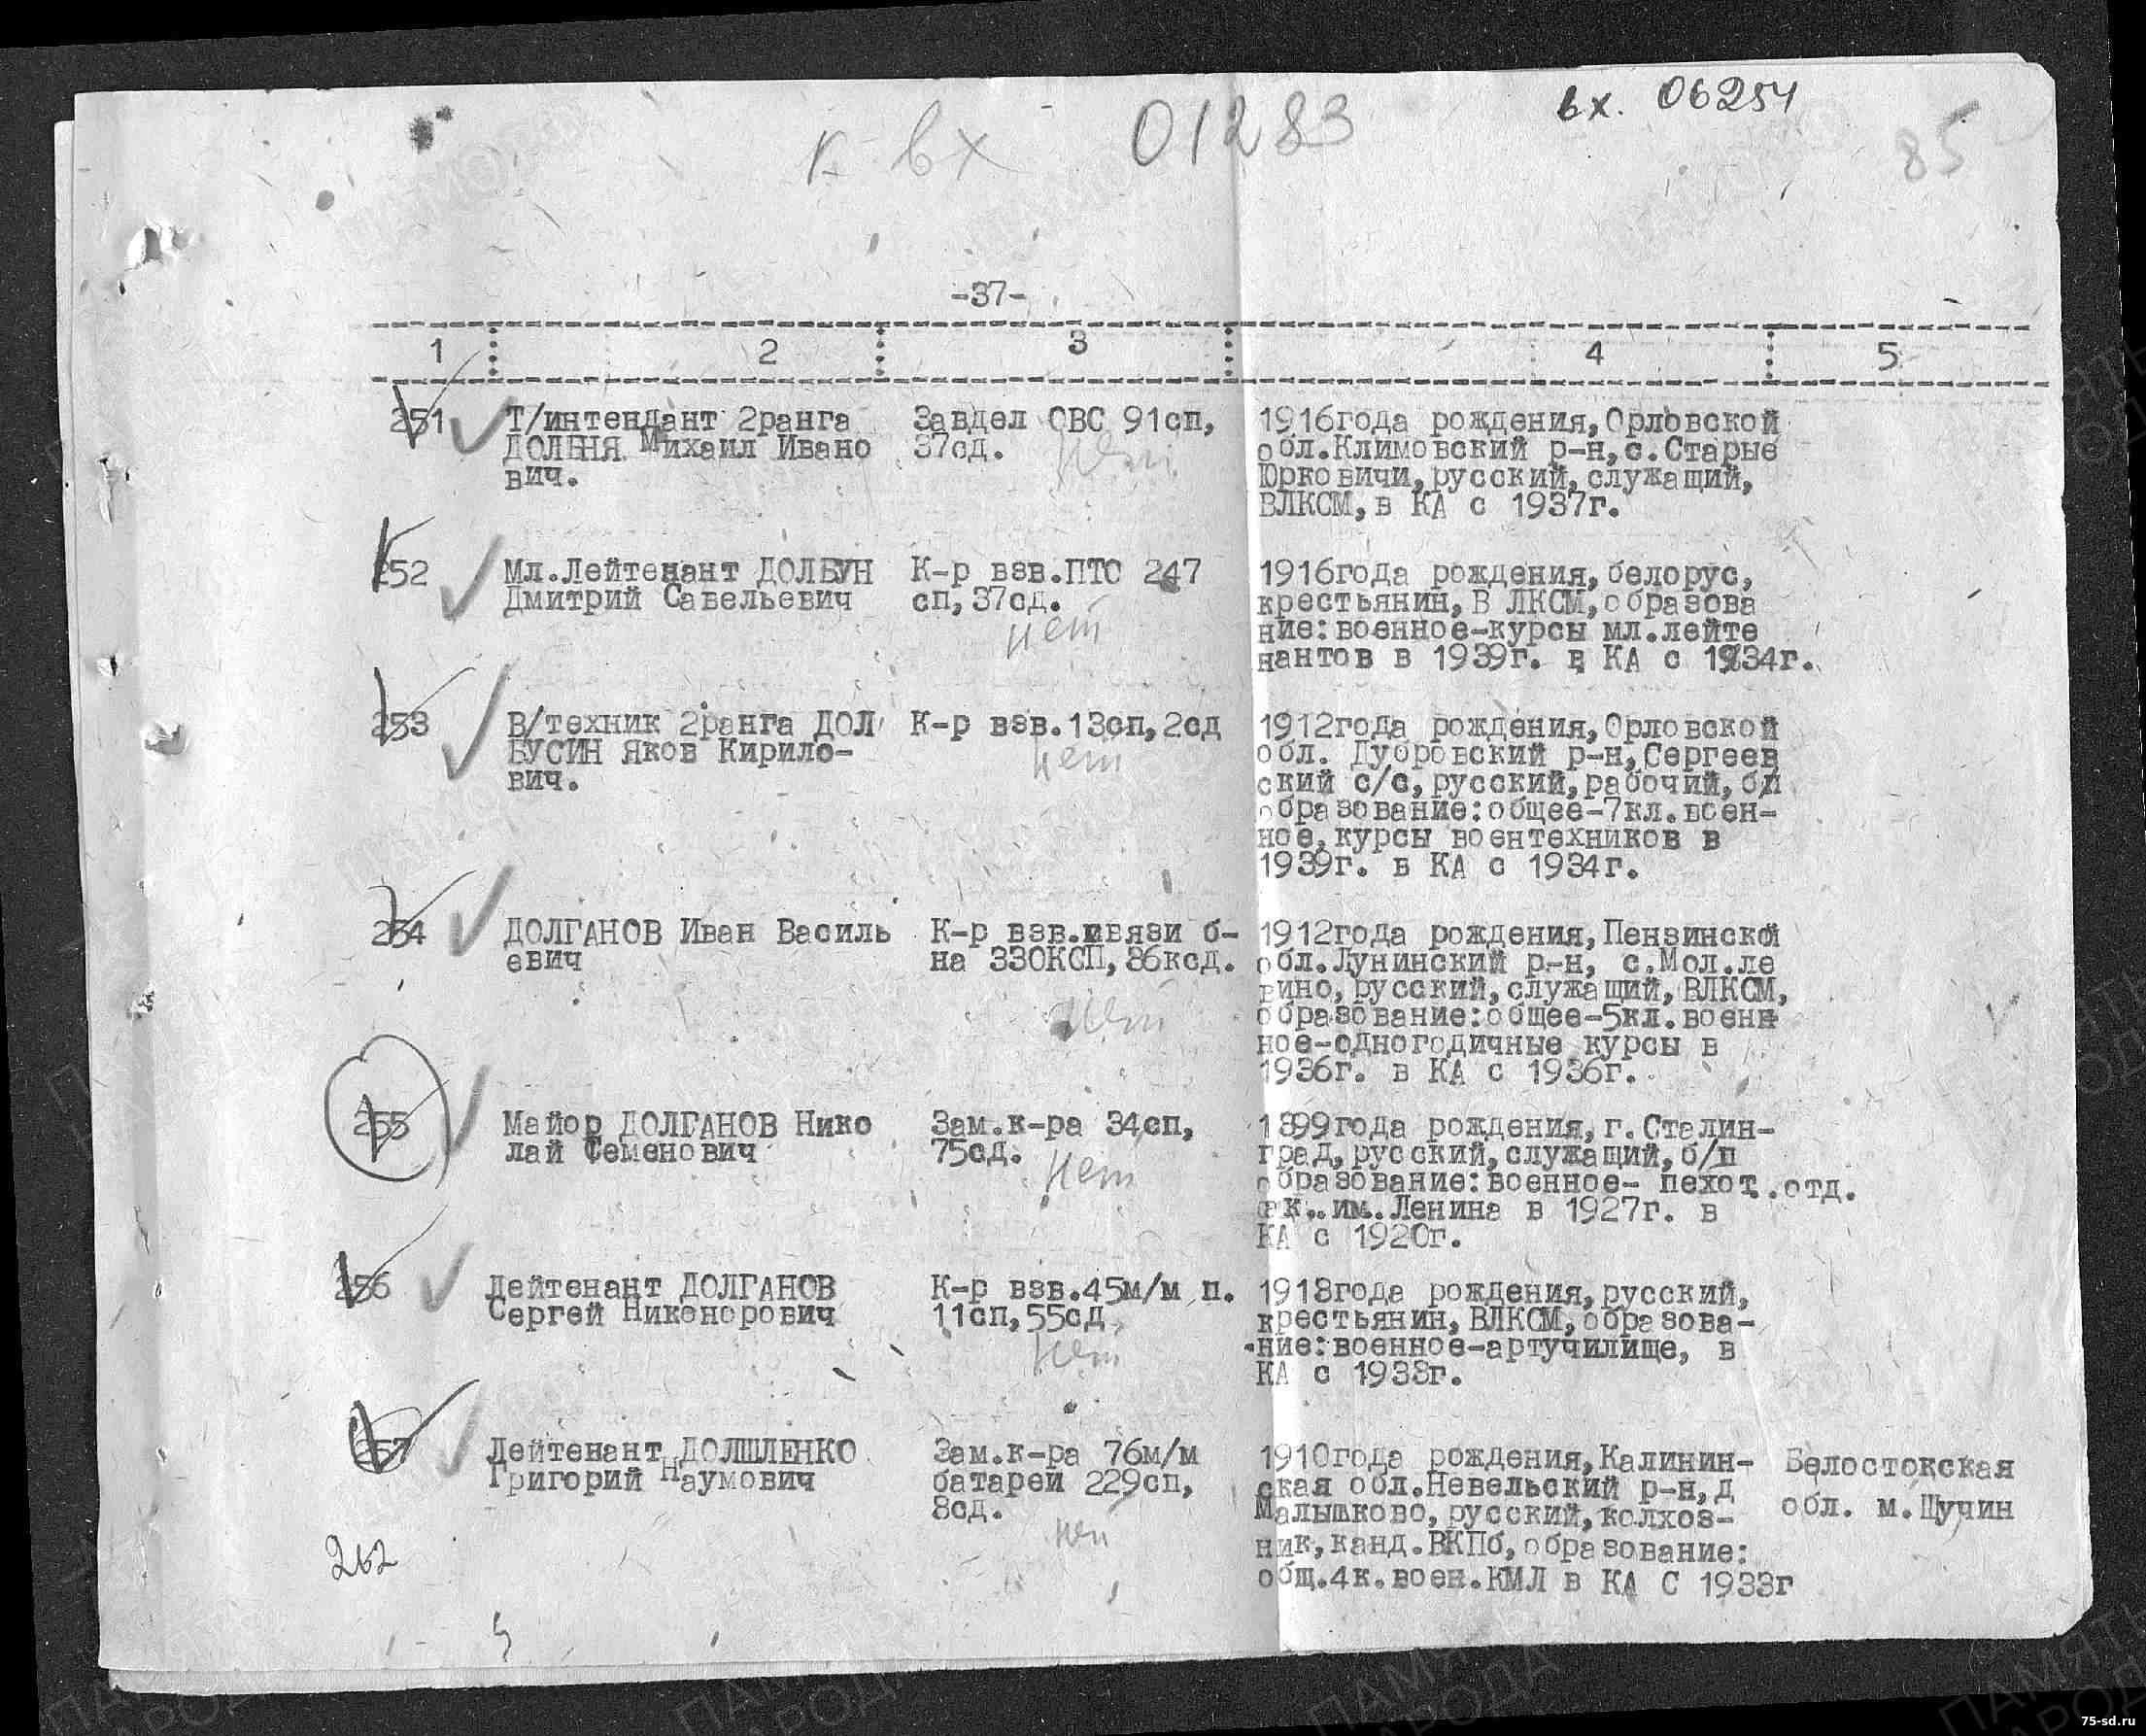 к вх 01283
вх. 06254
85
-37-
1 2 3 4 5
251 Т/интендант 2ранга Завдел СВС 91сп, 1916года рождения,Орловской
ДОЛБНЯ Михаил Ивано 37сд. обл.Климовский р-н,с.Старые
вич. нет Юрковичи,русский,служащий,
ВЛКСМ,в КА с 1937г.
252 Мл.Лейтенант ДОЛБУН К-р взв.ПТО 247 1916года рождения,белорус,
Дмитрий Савельевич сп,37сд. крестьянин,В ЛКСМ,образова
нет ние:военное-курсы мл.лейте
нантов в 1939г. в КА с 1934г.
253 В/техник 2ранга ДОЛ К-р взв.13сп,2сд 1912года рождения,Орловской
БУСИН Яков Кирило- нет обл. Дубровский р-н,Сергеев
вич. ский с/с,русский,рабочий,б/п
образование:общее-7кл.воен-
ное,курсы воентехников в
1939г. в КА с 1934г.
254 ДОЛГАНОВ Иван Василь К-р взв.связи б- 1912года рождения,Пензинской
евич на 330КСП,86ксд. обл.Лунинский р-н, с.Мол.ле
вино,русский,служащий,ВЛКСМ,
нет образование:общее-5кл.военн
ное-одногодичные курсы в
1936г. в КА с 1936г.
255 Майор ДОЛГАНОВ Нико Зам.к-ра 34сп, 1899года рождения,г.Сталин-
лай Семенович 75сд. град,русский,служащий,б/п
нет образование:военное- пехот.отд.
им.Ленина в 1927г. в
КА с 1920г.
256 Лейтенант ДОЛГАНОВ К-р взв.45м/м п. 1918года рождения,русский,
Сергей Никонорович 11сп,55сд, крестьянин,ВЛКСМ,образова-
нет ние:военное-артучилище, в
КА с 1938г.
257 Лейтенант ДОЛШЛЕНКО Зам.к-ра 76м/м 1910года рождения,Калинин- Белостокская
Григорий Наумович батареи 229сп, ская обл.Невельский р-н,д обл. м.Щучин
8сд. Малышково,русский,колхоз-
нет ник,канд.ВКПб,образование:
общ.4к.воен.КМЛ в КА С 1933г
262
ПАМЯТЬ НАРОДА
75-sd.ru